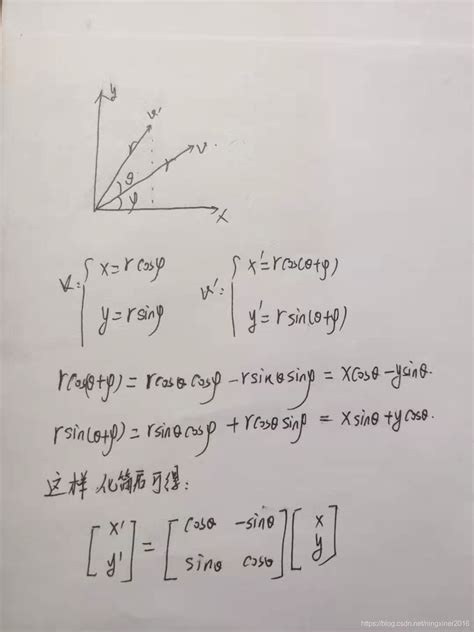 y
v'
r
v
r
θ
φ
x
v: { x = r cosφ    v': { x' = r cos(θ+φ)
y = r sinφ    y' = r sin(θ+φ)
r cos(θ+φ) = r cosθ cosφ - r sinθ sinφ = x cosθ - y sinθ.
r sin(θ+φ) = r sinθ cosφ + r cosθ sinφ = x sinθ + y cosθ.
这样化简后可得:
[ x' ] = [ cosθ  -sinθ ] [ x ]
[ y' ]   [ sinθ  cosθ ] [ y ]
https://blog.csdn.net/ningxiner2016